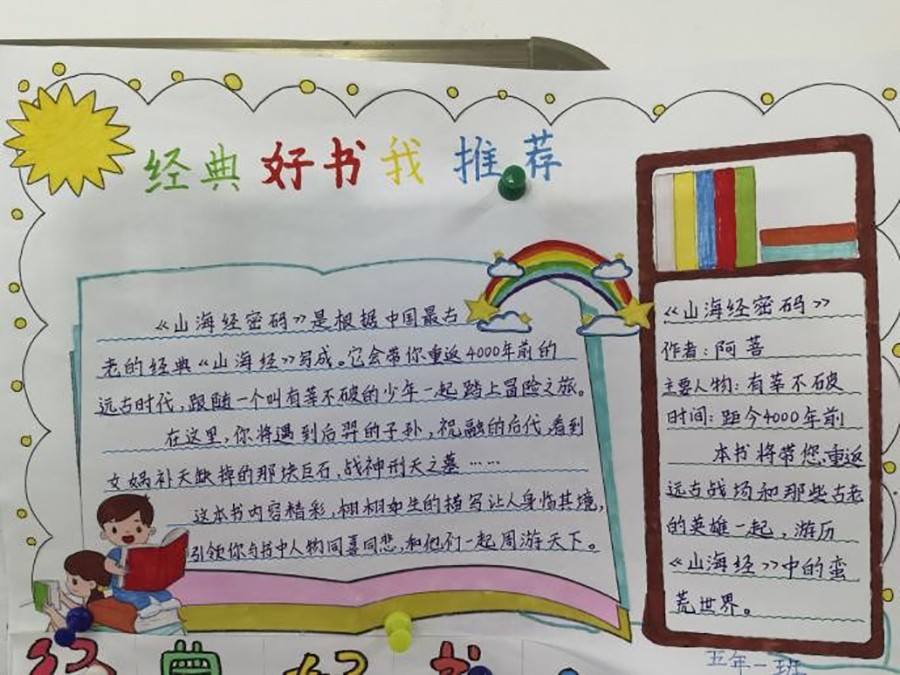 经典好书我推荐
《山海经密码》是根据中国最古
老的经典《山海经》写成。它会带你重返4000年前的
远古时代,跟随一个叫有莘不破的少年一起踏上冒险之旅。
在这里,你将遇到后羿的子孙,祝融的后代,看到
女娲补天缺掉的那块巨石,战神刑天之墓……
这本书内容精彩,栩栩如生的描写让人身临其境,
引领你与书中人物同喜同悲,和他们一起周游天下。
《山海经密码》
作者:阿菩
主要人物:有莘不破
时间:距今4000年前
本书将带您重返
远古战场和那些古老
的英雄一起,游历
《山海经》中的蛮
荒世界。
五年一班
经典好书